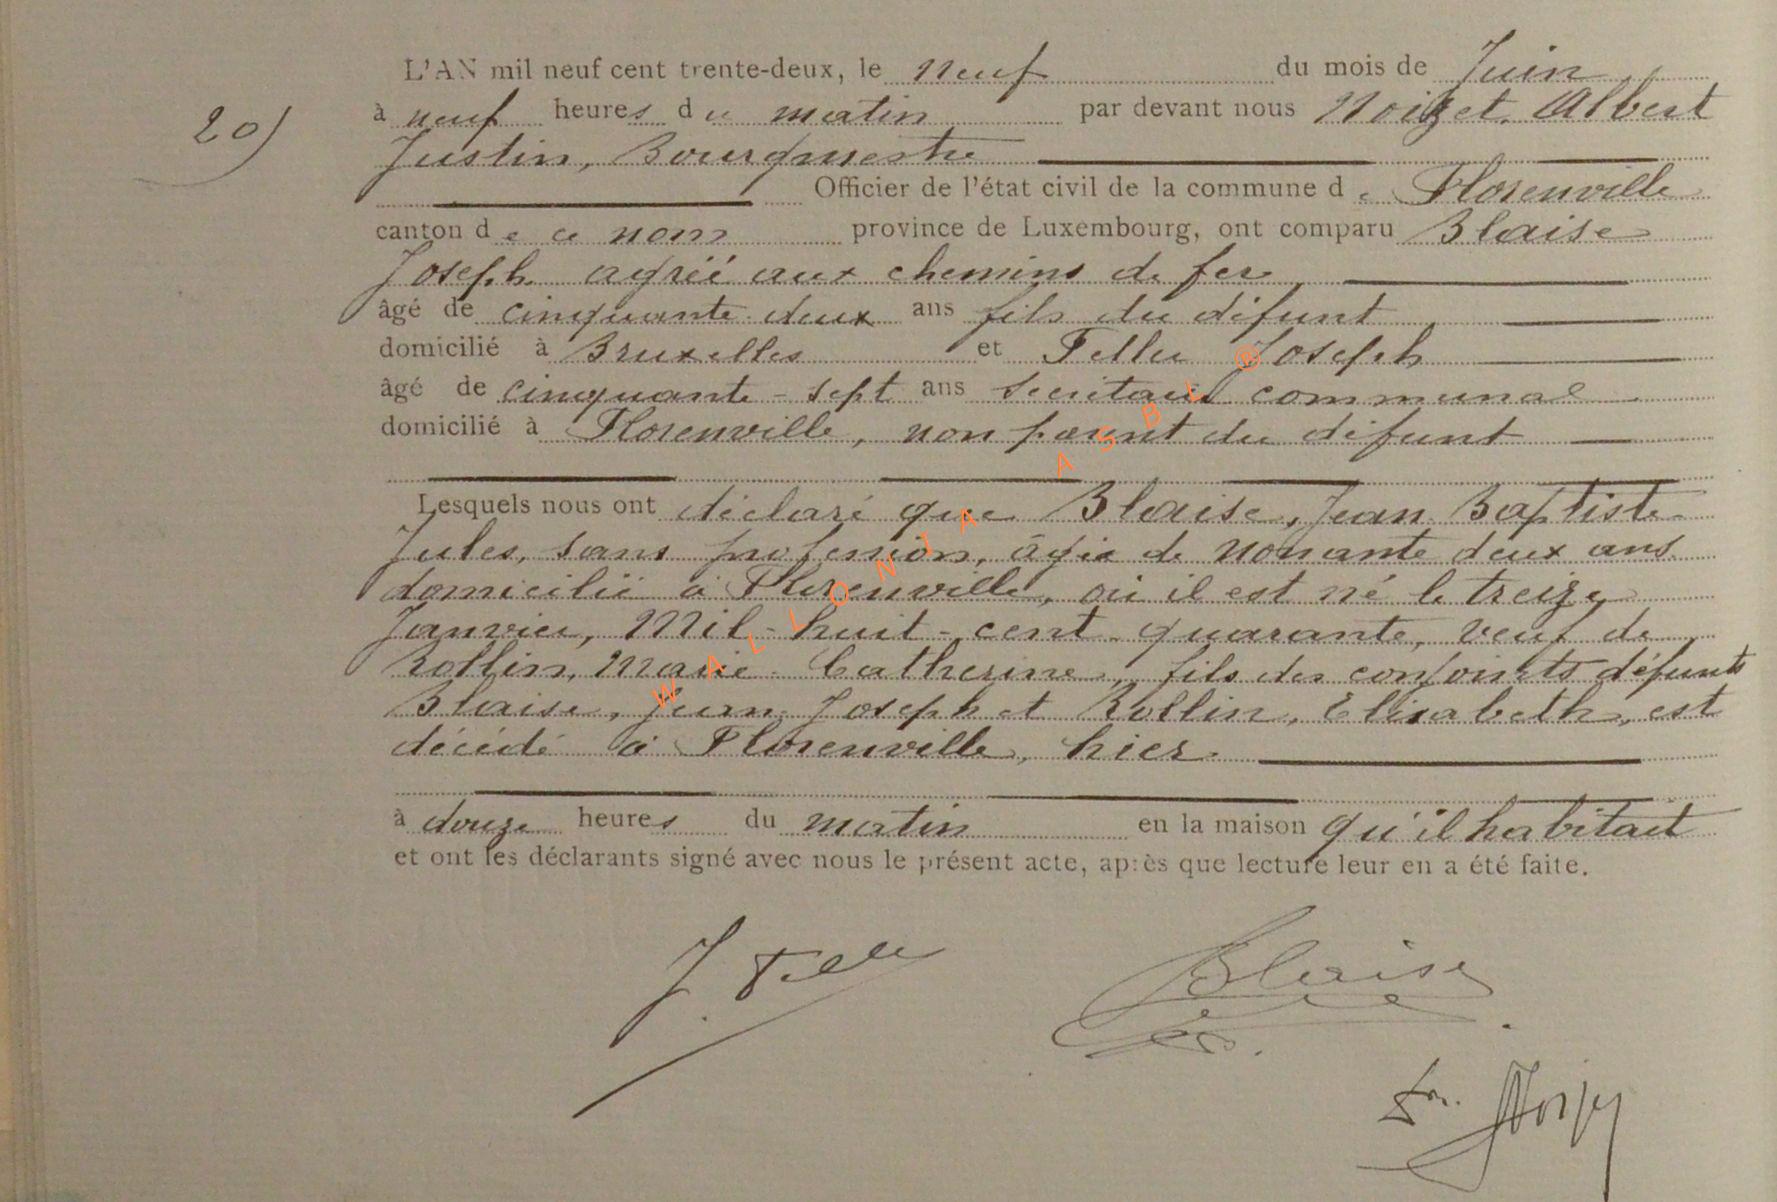 L'AN mil neuf cent trente-deux, le neuf du mois de Juin
20) à neuf heures du matin par devant nous Noizet, Albert
Justin, Bourgmestre
Officier de l'état civil de la commune de Florenville
canton de ce nom province de Luxembourg, ont comparu Blaise
Joseph agréé aux chemins de fer
âgé de cinquante deux ans fils du défunt
domicilié à Bruxelles et Feller Joseph
âgé de cinquante-sept ans secrétaire communal
domicilié à Florenville, non parent du défunt
Lesquels nous ont déclaré que Blaise, Jean Baptiste
Jules, sans profession, âgé de nonante deux ans
domicilié à Florenville, où il est né le treize
Janvier, Mil-huit-cent quarante, veuf de
Rollin, Marie Catherine, fils des conjoints défunts
Blaise, Jean Joseph et Rollin, Elisabeth, est
décédé à Florenville, hier
à douze heures du matin en la maison qu'il habitait
et ont les déclarants signé avec nous le présent acte, après que lecture leur en a été faite.
WALLONIA ASBL ®
J. Feller Blaise